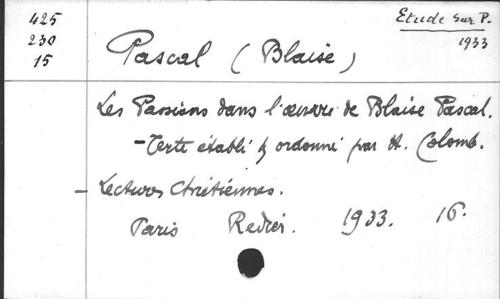 425
230
15
Etude sur P.
1933
Pascal (Blaise)
Les Passions dans l'œuvre de Blaise Pascal.
- Texte établi & ordonné par A. Colomb.
- Lectures Chrétiennes.
Paris Redier. 1933. 16.